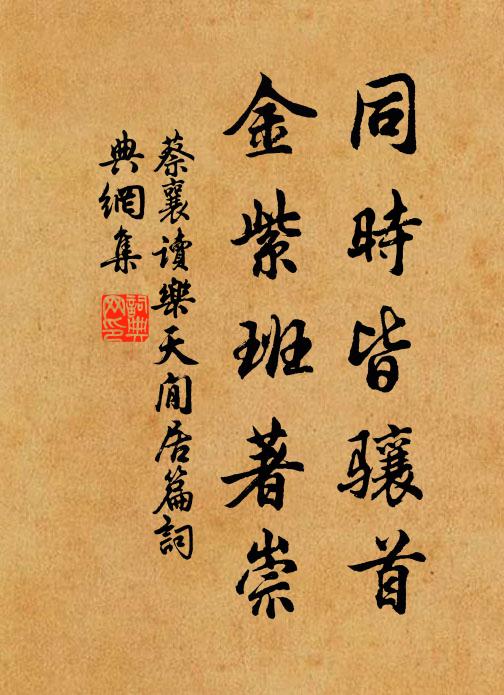 同時皆驤首
金紫班著崇
蔡襄讀樂天閒居篇詞
典網集
詞典网印